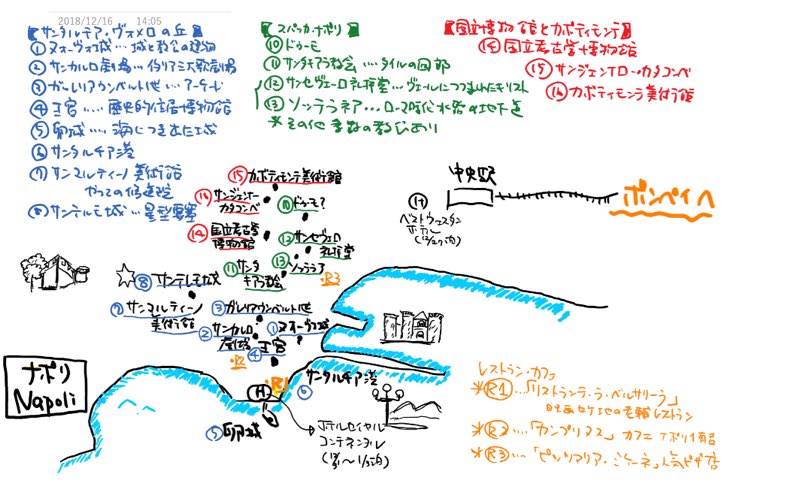 2018/12/16 14:05
【サンタルチア・ヴォメロの丘】
① ヌオーヴォ城…城と教会の建物
② サンカルロ劇場…イタリア三大歌劇場
③ ガレリアウンベルト1世…アーケード
④ 王宮……歴史的住居博物館
⑤ 卵城……海につき出た城
⑥ サンタルチア港
⑦ サンマルティーノ美術館
かつての修道院
⑧ サンテルモ城…星型要塞
【スパッカ・ナポリ】
⑩ ドゥーモ
⑪ サンタキアラ教会…タイルの回廊
⑫ サンセヴェーロ礼拝堂…ヴェールにつつまれたキリスト
⑬ ソッテラネア…ローマ時代水路の地下道
＊その他多数の教会あり
【国立博物館とカポディモンテ】
⑭ 国立考古学博物館
⑮ サンジェンナロ・カタコンベ
⑯ カポディモンテ美術館
⑮ カポディモンテ美術館
⑯ サンジェンナー
カタコンベ
⑩ ドゥーモ
⑭ 国立考古学
博物館
⑫ サンセヴェロ
礼拝堂
⑬ ソッテラネア
⑪ サンタ
キアラ教会
・R3
⑧ サンテレモ城
⑦ サンマルティーノ
美術館
③ ガレリアウンベルト1世
② サンカルロ
劇場
① ヌオーヴォ城
④ 王宮
R2
R1
H
⑥ サンタルチア港
⑤ 卵城
ホテルロイヤル
コンチネンタル
中央駅
ポンペイへ
⑰
ベストウェスタン
ホテル
(12/27泊)
ナポリ
Napoli
レストラン・カフェ
＊R1…「リストランテ・ラ・ベルサリエーラ」
老舗レストラン
＊R2…「ガンブリヌス」カフェ
＊R3…「ピッツァリア・ 」人気ピザ店